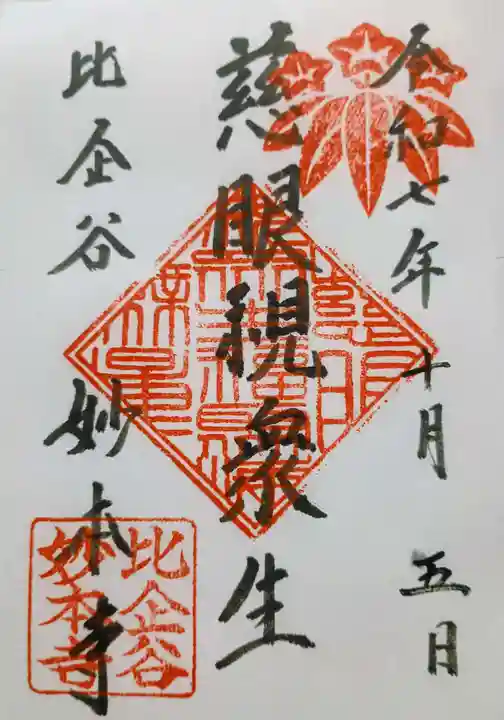 令和七年 十月 五日
慈眼視衆生
比企谷 妙本寺
比企谷
妙本寺